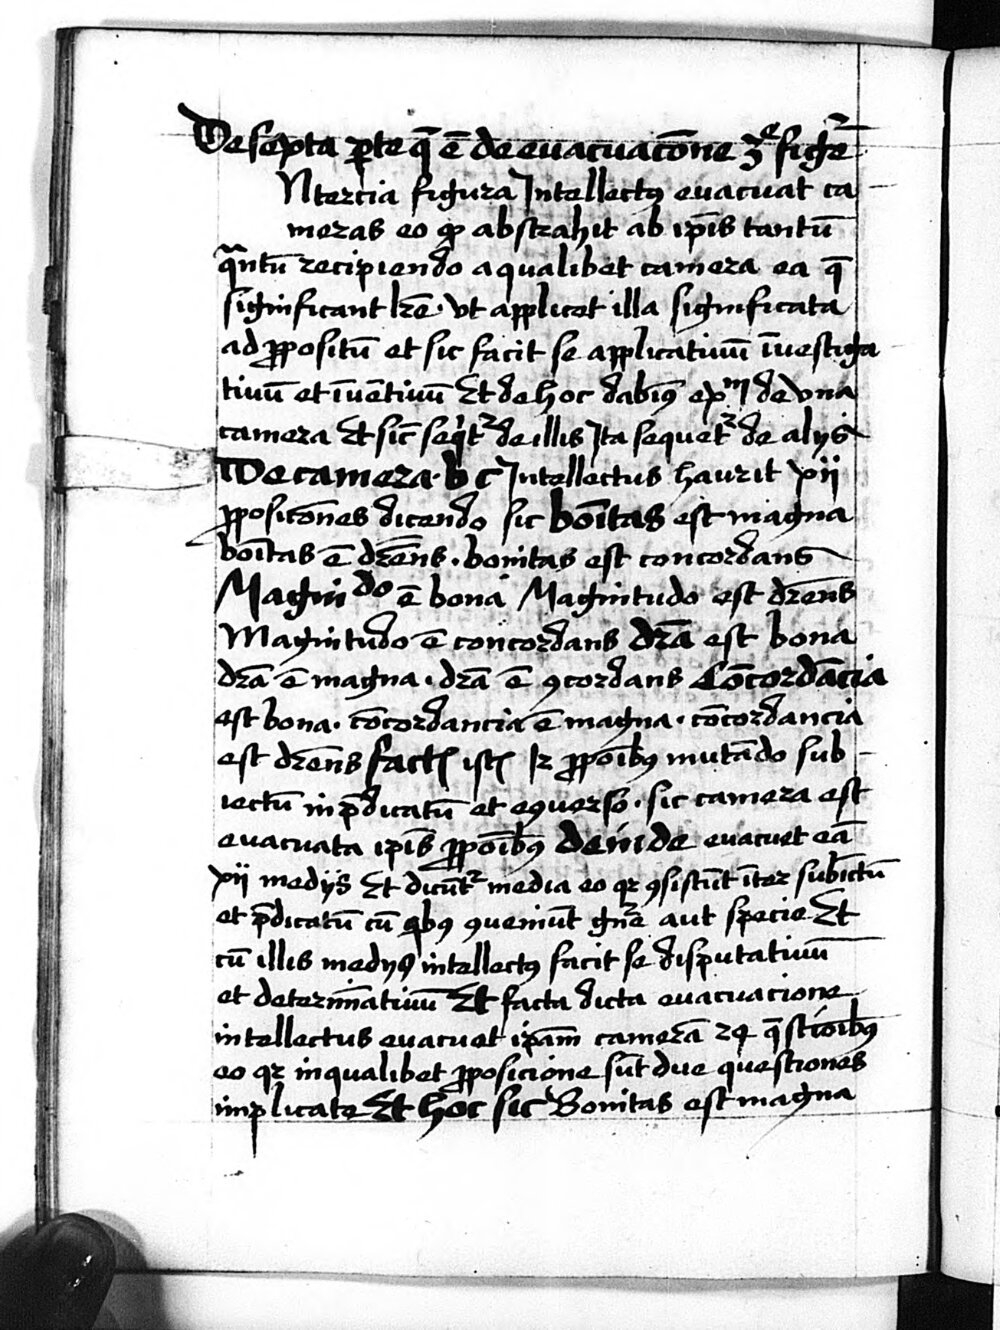 De sexta ꝑte q̄ ē de euacuacōne 3ͤ figͬe
N tercia figura Intellectꝰ euacuat ca
meras eo ꝙ abstrahit ab ip̄is tantū
qͣntū recipiendo a qualibet camera ea q̄
significant lr̄e · vt applicet illa significata
ad ꝓpositū et sic facit se applicatiuū īuestiga
tiuū et īuētiuū Et de hoc dabimꝰ exᵐ de vna
camera Et sic̄ seqͥtᷣ de illis Ita sequetᷣ de alijs
De camera · b c Intellectus haurit xij
ꝓposicōnes dicendo sic boītas est magna
boītas ē dr̄ens · bonitas est concordans
Magniᵈᵒ ē bona Magnitudo est dr̄ens
Magnitudo ē concordans dr̄a est bona
dr̄a ē magna · dr̄a ē ꝯcordans Cōcordācia
est bona · cōcordancia ē magna · cōcordancia
est dr̄ens factꝭ istꝭ 12 ꝓpoībꝰ mutādo sub
iectū in p̄dicatū et eꝯuerso · sic camera est
euacuata ip̄is ꝓpoībꝰ deinde euacuet eā
xij medijs Et dicūtᷣ media eo qꝛ ꝯsistūt īter subīctū
et p̄dicatū cū qͥbꝰ ꝯueniūt gn̄e aut specie Et
cū illis medijs intellectꝰ facit se disputatiuū
et determīatiuū Et facta dicta euacuacione
intellectus euacuet ip̄am camerā 24 q̄stioībꝰ
eo qꝛ in qualibet ꝓposicione sūt due questiones
implicate Et hoc sic Bonitas est magna